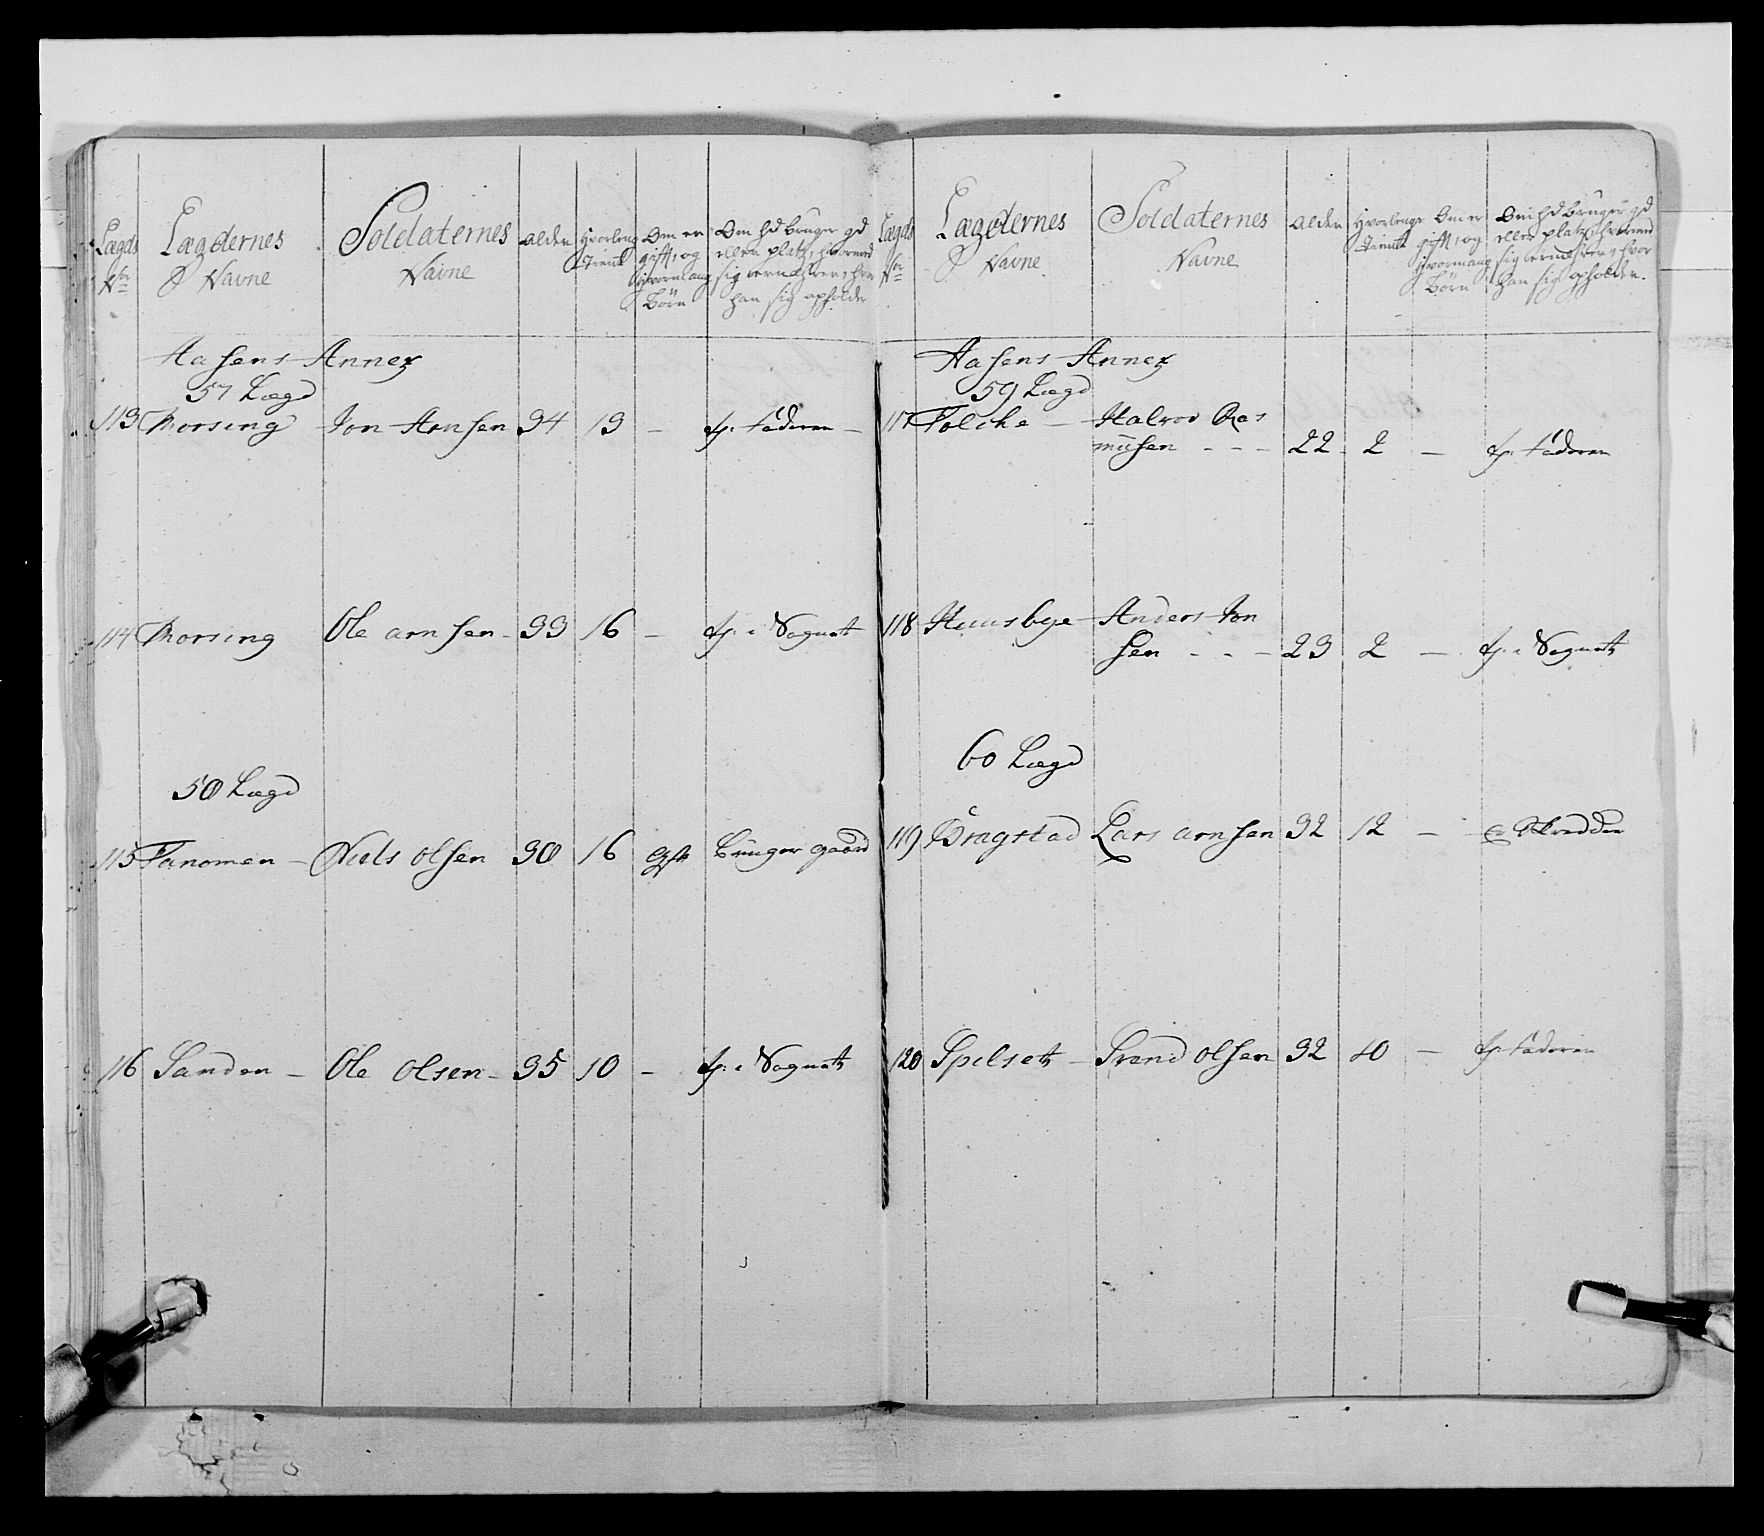 Lægds Nr
Lægdernes Navne
Soldaternes Navne
alder
Hvorlenge tient
Om er gift, og Hvormang Börn
Om hd bruger gd eller platz, hvormed sig ernærer, hvor han sig opholder
Aasens Annex
57 Lægd
113 Morsing Jon Arnsen 34 13 – hs: faderen –
114 Morsing Ole arnsen – 33 16 – hs: i Sognet
58 Lægd
115 Fanomen – Niels olsen 30 16 gift bruger gaard
116 Sanden – Ole olsen – 35 10 – hs: i Sognet
Lægds Nr
Lægdernes Navne
Soldaternes Navne
alder
Hvorlenge tient
Om er gift, og Hvormang Börn
Om hd bruger gd eller platz, hvormed sig ernærer, hvor han sig opholder.
Aasens Annex
59 Lægd
117 Folche – Halvor Ras
musen – – – 22 – 2 – hs: faderen
118 Huusbye – Anders Jon
sen – – – 23 2 – hs: i Sognet
60 Lægd
119 Bragstad Lars arnsen 32 12 – er Skredder
120 Spilset – Trend olsen 32 10 – hs: faderen